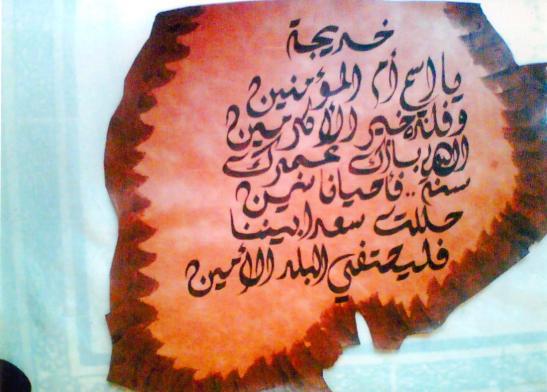 خديجة
يا اسم أم المؤمنين
وفلة خير الأكرمين
الله بارك عمرك
.. فأحيانا سنين
حللت سعدا بيننا
فليحتفي البلد الأمين